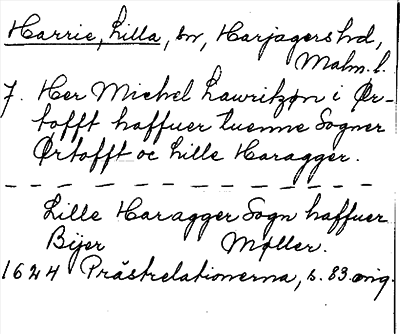 Harrie, Lilla, sn, Harjagers hd,
Malm. l.
7. Her Michel Lauritzøn i Ør-
tofft haffuer tuenne Sogner
Ørtofft oc Lille Haragger.
Lille Haragger Sogn haffuer
Bÿer Møller.
1624 Prästrelationerna, s. 83. orig.